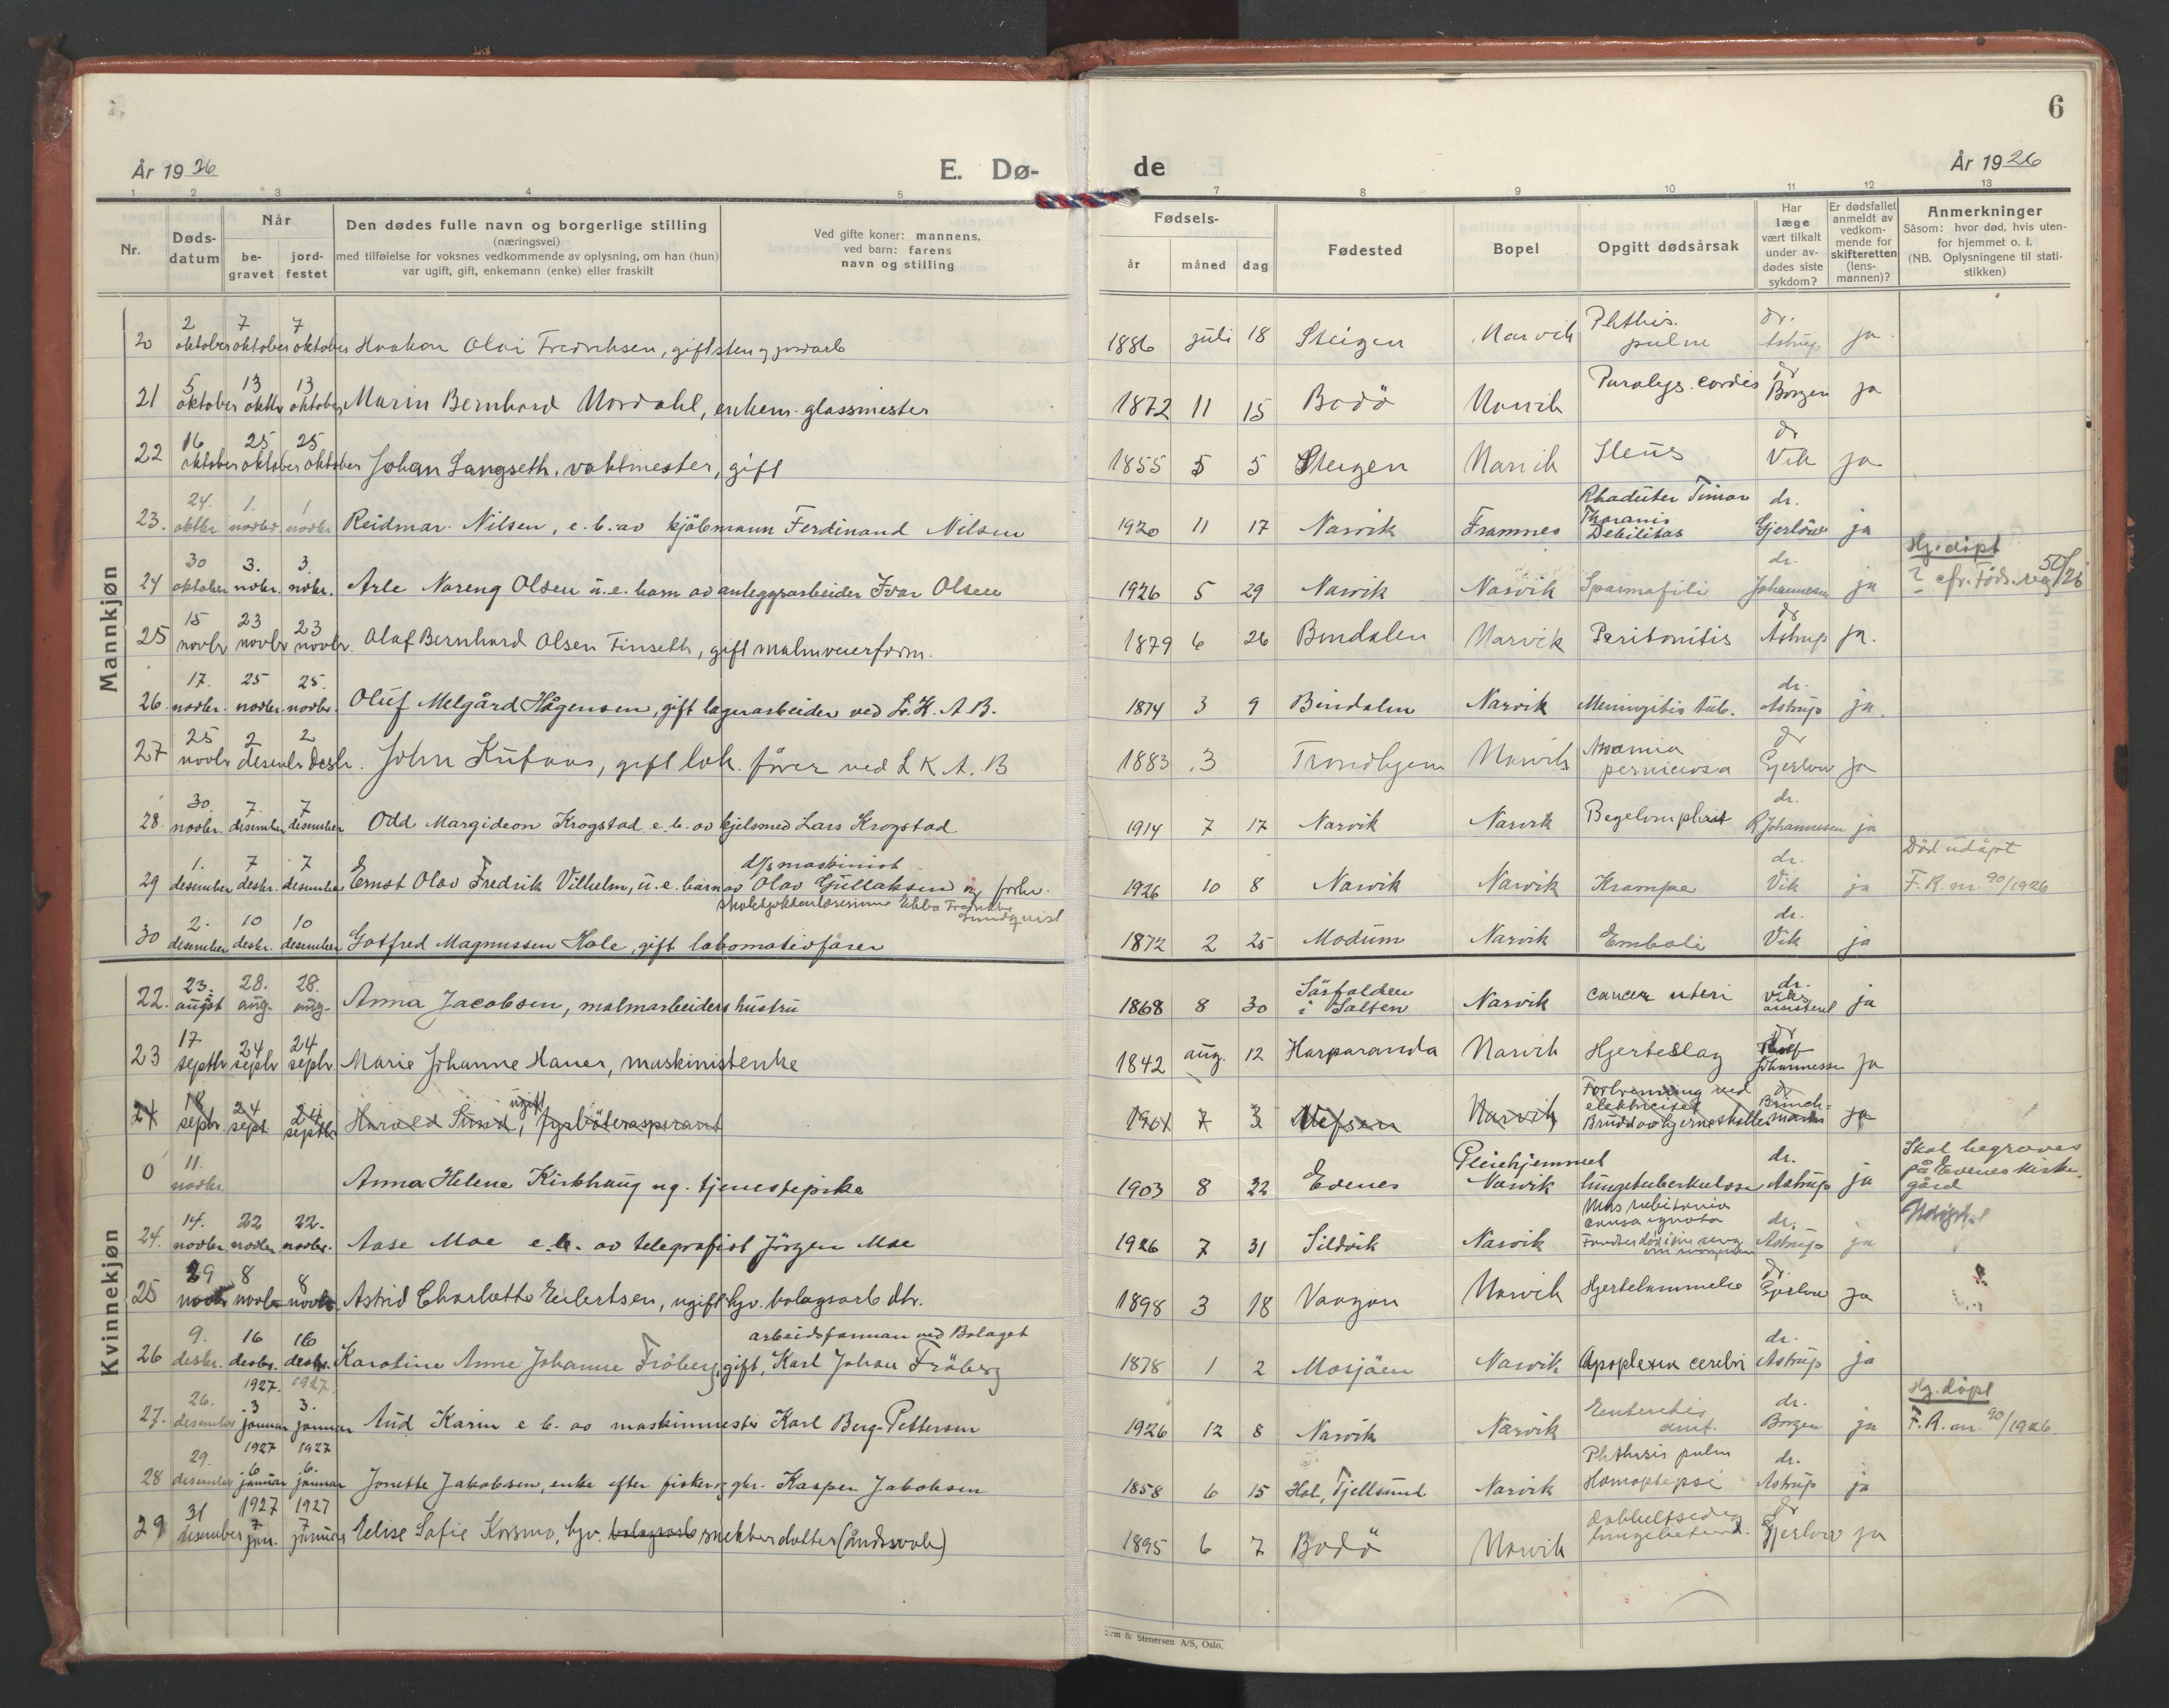 6
År 1926 E. Dø- de År 1926
1 2 3 4 5 7 8 9 10 11 12 13
Nr.
Døds-
datum
Når
be-
gravet
jord-
festet
Den dødes fulle navn og borgerlige stilling
(næringsvei)
med tilføielse for voksnes vedkommende av oplysning, om han (hun)
var ugift, gift, enkemann (enke) eller fraskilt
Ved gifte koner: mannens,
ved barn: farens
navn og stilling
Fødsels-
år måned dag
Fødested
Bopel
Opgitt dødsårsak
Har
læge
vært tilkalt
under av-
dødes siste
sykdom?
Er dødsfallet
anmeldt av
vedkom-
mende for
skifteretten
(lens-
mannen)?
Anmerkninger
Såsom: hvor død, hvis uten-
for hjemmet o. l.
(NB. Oplysningene til stati-
stikken)
Mannkjøn
20 2 oktober 7 oktober 7 oktober Haakon Olai Fredriksen, gift sten og jordarb 1886 juli 18 Steigen Narvik Phthis. pulm dr. Astrup ja.
21 5 oktober 13 oktbr 13 oktober Marin Bernhard Nordahl, enkem. glassmester 1872 11 15 Bodö Narvik Paralys. cordis dr Borgen ja
22 16 oktober 25 oktober 25 oktober Johan Langseth, vaktmester, gift 1855 5 5 Steigen Narvik Ileus dr Vik ja
23. 24. oktbr 1. novbr. 1 novbr. Reidmar Nilsen, e. b. av kjöbmann Ferdinand Nilsen 1920 11 17 Narvik Framnes Debilitas dr. Gjerlöw ja
24 30 oktober 3. novbr. 3. novbr. Arle Nareng Olsen u. e. barn av anleggsarbeider Ivar Olsen 1926 5 29 Narvik Narvik Spasmofili dr. Johannesen ja Hj. döpt ? cfr. Föds. reg 50/26
25 15 novbr 23 novbr 23 novbr. Olaf Bernhard Olsen Finseth, gift malmveierform. 1879 6 26 Bindalen Narvik Peritonitis dr Astrup ja.
26 17. novbr. 25 novbr. 25. novbr. Oluf Melgård Hågensen, gift lagerarbeider ved L. K. A. B. 1874 3 9 Bindalen Narvik Meningitis tub. dr. Astrup ja.
27 25 novbr 2 desembr 2 desbr. John Kufaas, gift lok. förer ved L K A. B 1883 3 Trondhjem Narvik Anæmia perniciosa dr Gjerlow ja
28. 30. novbr. 7. desember 7 desember Odd Margideon Krogstad e. b. av kjelsmed Lars Krogstad 1914 7 17 Narvik Narvik dr. R Johannesen ja
29 1. desember 7 desbr. 7 desember Ernst Olav Fredrik Vilhelm, u. e. barn av d/s maskinist Olav Gullaksen og frøken skolekjøkkenlærerinne Ebba Fredrikke Lundquist 1926 10 8 Narvik Narvik Krampe dr. Vik ja Död udöpt F. R. nr. 90/1926
30 2. desember 10 desbr. 10 desember Gotfred Magnussen Hole, gift lokomotivförer 1872 2 25 Modum Narvik Emboli dr. Vik ja
Kvinnekjøn
22. 23. augst 28. aug. 28. aug. Anna Jacobsen, malmarbeiders hustru 1868 8 30 Sörfolden i Salten Narvik cancer uteri dr. Viks assistent ja
23 17. septbr 24 septbr 24 septbr. Marie Johanne Haner, maskinistenke 1842 aug. 12 Harparanda Narvik Hjerteslag dr Rolf Johannessen ja
24 18 septr. 24 sept. 24 septbr Harald Sund, ugift fyrböteraspirant 1901 7 3 Vefsen Narvik Forbrenning ved elektricitet Brudd av hjerneskallen dr Brinchmann ja
0 11. novbr. Anna Helene Kirkhaug ug. tjenestepike 1903 8 22 Evenes Pleiehjemmet Narvik lungetuberkulose dr. Astrup ja Skal begraves på Evenes kirkegård
24. 14. novbr. 22 novbr. 22. novbr. Aase Moe e. b. av telegrafist Jörgen Moe 1926 7 31 Sildvik Narvik Mors subitanea causa ignota dr. Astrup ja
25 29 novbr 8 novbr 8 novbr. Astrid Charlotte Eilertsen, ugift hjv. bolagsarb dtr. 1898 3 18 Vaagan Narvik Hjertelammelse dr. Gjerlow ja
26 9. desbr. 16 desbr. 16 desbr. Karoline Anne Johanne Fröberg, gift, arbeidsforman ved Bolaget Karl Johan Fröberg 1878 1 2 Mosjöen Narvik Apoplexia cerebri dr. Astrup ja
27. 26. desember 1927. 3 januar 1927. 3. januar Aud Karin e b. av maskinmester Karl Berg-Pettersen 1926 12 8 Narvik Narvik Enteritis acut. dr. Borgen ja Hj. döpt F. R. nr. 90/1926
28 29. desember 1927 6. januar 1927 6. januar Jonette Jakobsen, enke efter fisker og gbr. Kasper Jakobsen 1858 6 15 Hol, Tjellsund Narvik Phthisis pulm Hæmoptepsi dr. Astrup ja
29 31 desember 1927 7 jan. 1927 7 januar Elise Sofie Korsmo, hjv. bolagsarb snekker datter (åndssvak) 1895 6 7 Bodö Narvik Dobbeltsedig lungebetend. dr Gjerlow ja
& Stenersen A/S, Oslo.